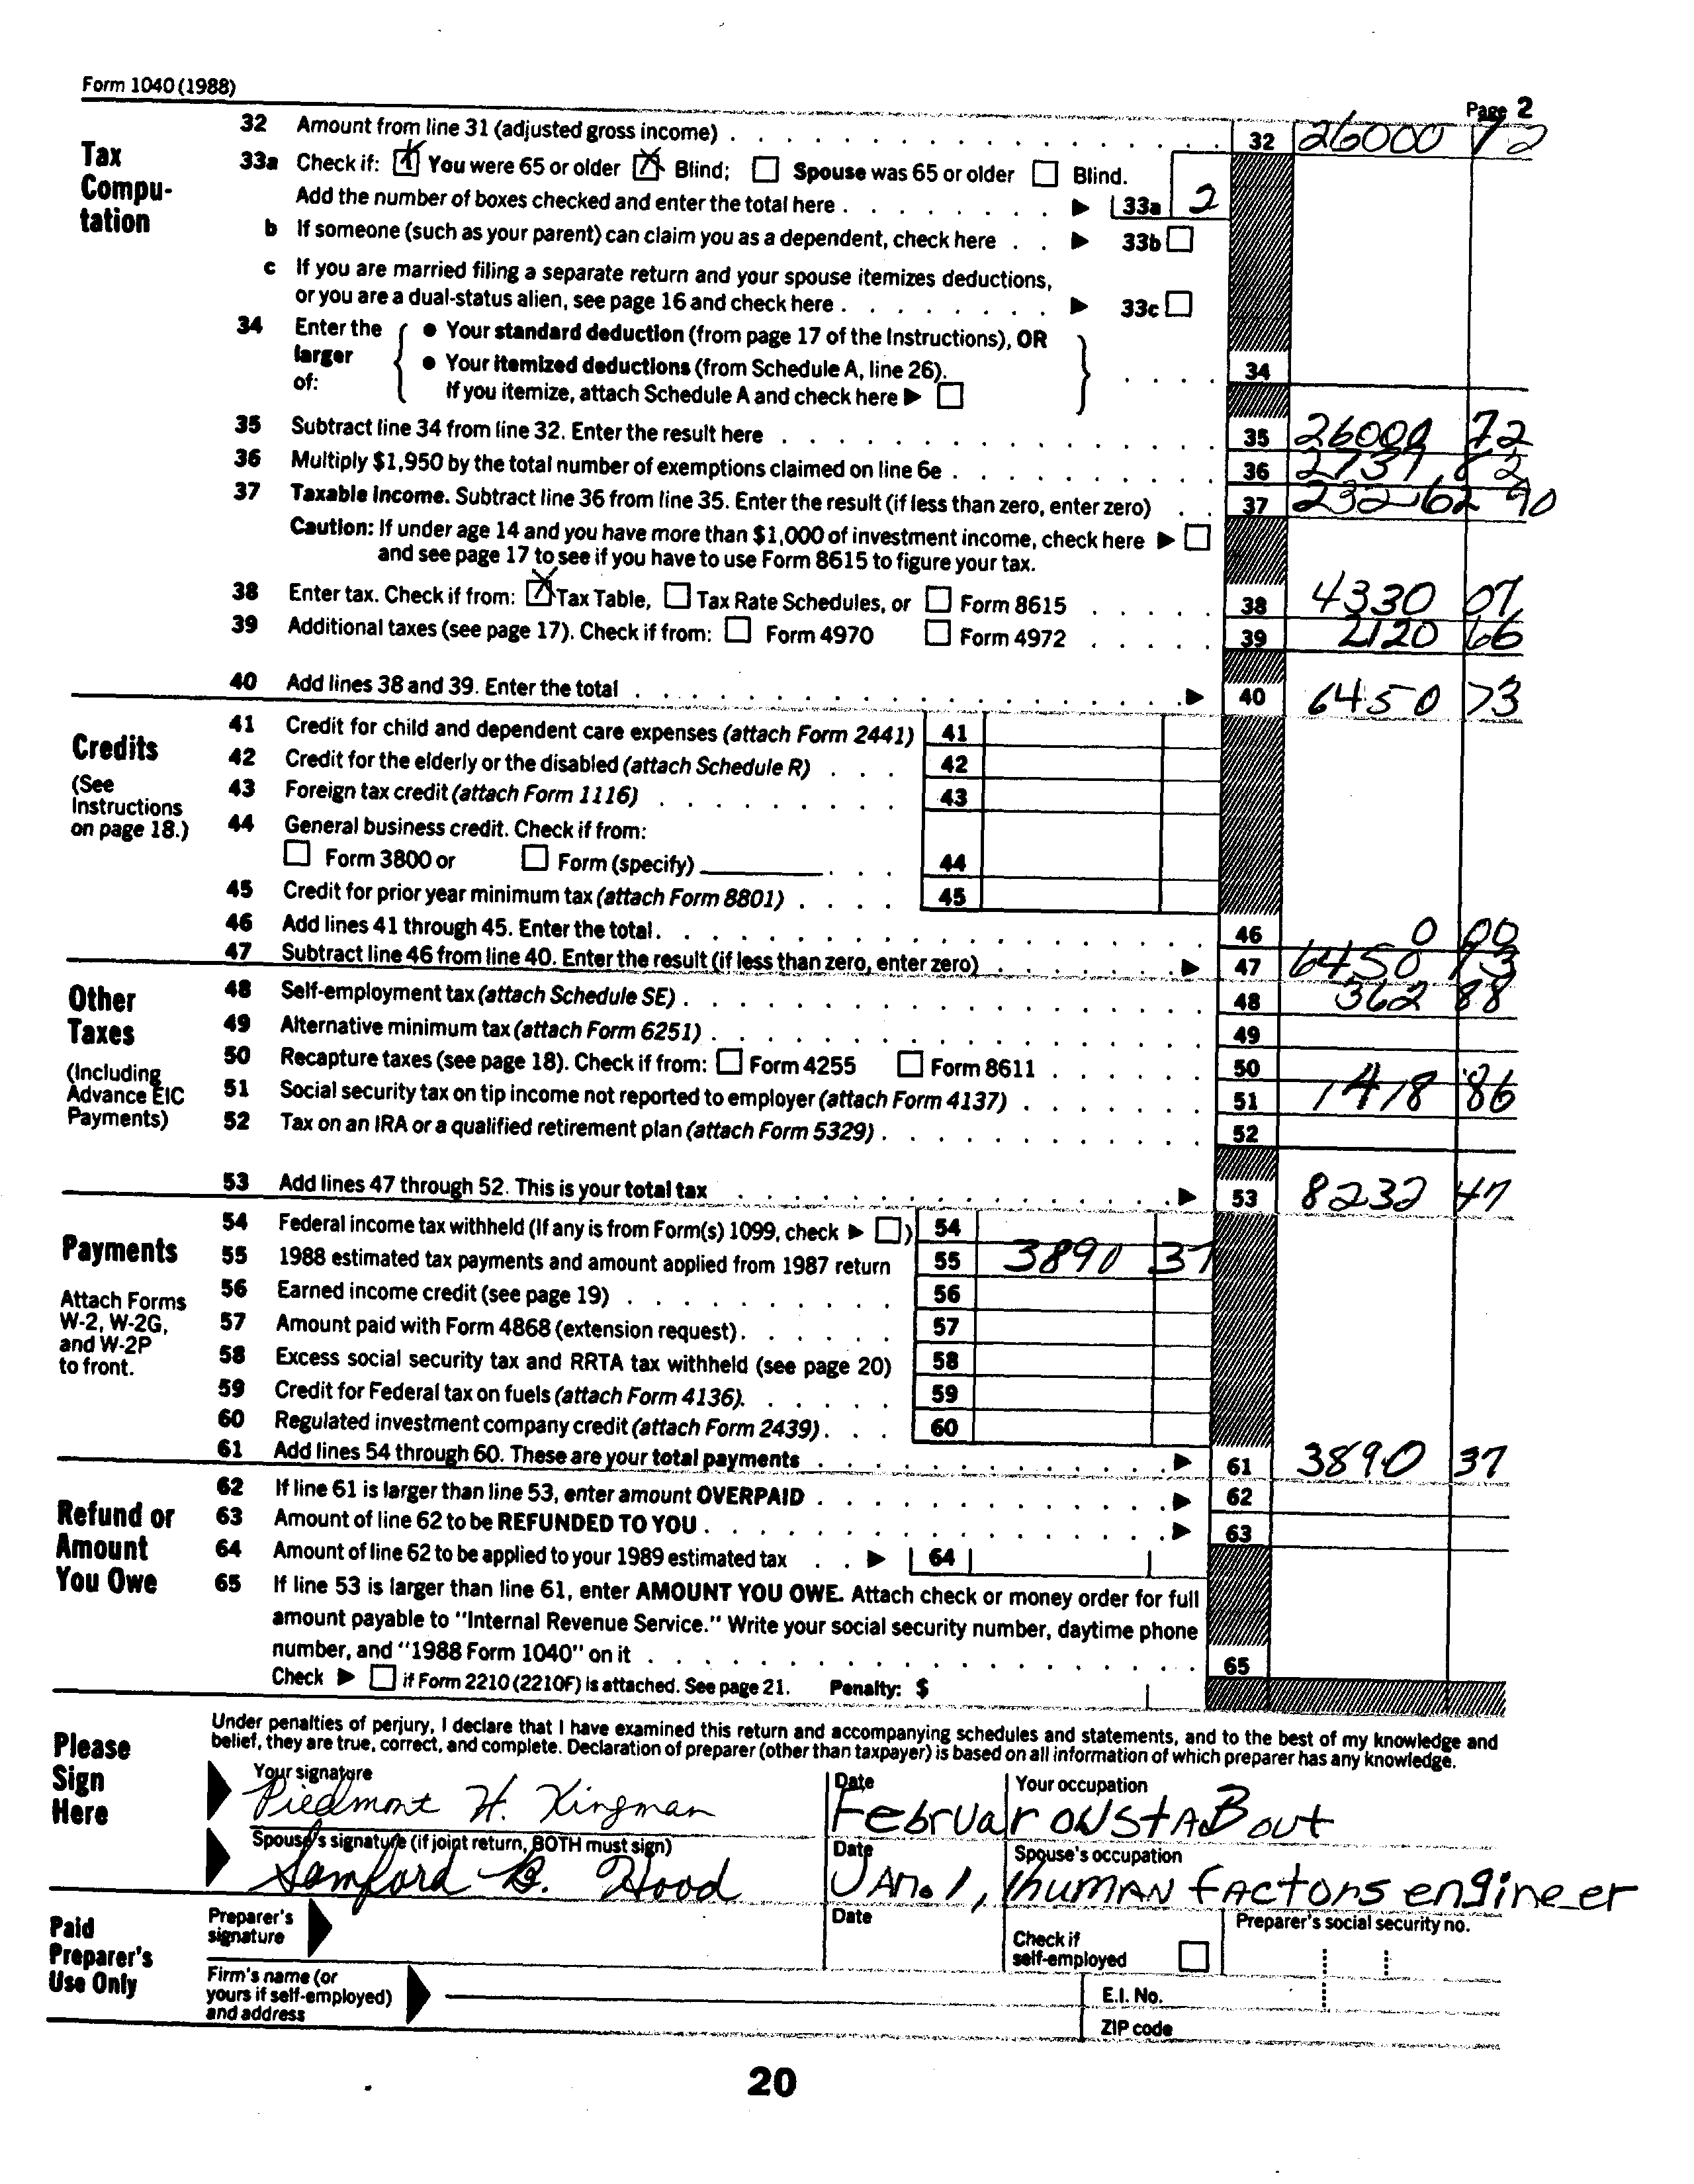 Form 1040 (1988)
Page 2
Tax Compu-tation
32 Amount from line 31 (adjusted gross income) . . . 32 26000 72
33a Check if: [X] You were 65 or older [X] Blind; [ ] Spouse was 65 or older [ ] Blind.
Add the number of boxes checked and enter the total here . . . ▶ 33a 2
b If someone (such as your parent) can claim you as a dependent, check here . . ▶ 33b [ ]
c If you are married filing a separate return and your spouse itemizes deductions,
or you are a dual-status alien, see page 16 and check here . . . ▶ 33c [ ]
34 Enter the larger of: { ● Your standard deduction (from page 17 of the Instructions), OR
● Your itemized deductions (from Schedule A, line 26).
If you itemize, attach Schedule A and check here ▶ [ ] } . . . . 34
35 Subtract line 34 from line 32. Enter the result here . . . 35 26000 72
36 Multiply $1,950 by the total number of exemptions claimed on line 6e . . . 36 2737 82
37 Taxable income. Subtract line 36 from line 35. Enter the result (if less than zero, enter zero) . . 37 23262 90
Caution: If under age 14 and you have more than $1,000 of investment income, check here ▶ [ ]
and see page 17 to see if you have to use Form 8615 to figure your tax.
38 Enter tax. Check if from: [X] Tax Table, [ ] Tax Rate Schedules, or [ ] Form 8615 . . . 38 4330 07
39 Additional taxes (see page 17). Check if from: [ ] Form 4970 [ ] Form 4972 . . . 39 2120 66
40 Add lines 38 and 39. Enter the total . . . ▶ 40 6450 73
Credits
(See Instructions on page 18.)
41 Credit for child and dependent care expenses (attach Form 2441) 41
42 Credit for the elderly or the disabled (attach Schedule R) . . . 42
43 Foreign tax credit (attach Form 1116) . . . 43
44 General business credit. Check if from:
[ ] Form 3800 or [ ] Form (specify) ______ . . . 44
45 Credit for prior year minimum tax (attach Form 8801) . . . . 45
46 Add lines 41 through 45. Enter the total. . . . 46 0 00
47 Subtract line 46 from line 40. Enter the result (if less than zero, enter zero) . . . ▶ 47 6450 73
Other Taxes
(Including Advance EIC Payments)
48 Self-employment tax (attach Schedule SE) . . . 48 362 88
49 Alternative minimum tax (attach Form 6251) . . . 49
50 Recapture taxes (see page 18). Check if from: [ ] Form 4255 [ ] Form 8611 . . . 50
51 Social security tax on tip income not reported to employer (attach Form 4137) . . . 51 1418 86
52 Tax on an IRA or a qualified retirement plan (attach Form 5329) . . . 52
53 Add lines 47 through 52. This is your total tax . . . ▶ 53 8232 47
Payments
Attach Forms W-2, W-2G, and W-2P to front.
54 Federal income tax withheld (If any is from Form(s) 1099, check ▶ [ ]) 54
55 1988 estimated tax payments and amount applied from 1987 return 55 3890 37
56 Earned income credit (see page 19) . . . 56
57 Amount paid with Form 4868 (extension request) . . . 57
58 Excess social security tax and RRTA tax withheld (see page 20) 58
59 Credit for Federal tax on fuels (attach Form 4136). . . . 59
60 Regulated investment company credit (attach Form 2439) . . . 60
61 Add lines 54 through 60. These are your total payments . . . ▶ 61 3890 37
Refund or Amount You Owe
62 If line 61 is larger than line 53, enter amount OVERPAID . . . ▶ 62
63 Amount of line 62 to be REFUNDED TO YOU . . . ▶ 63
64 Amount of line 62 to be applied to your 1989 estimated tax . . ▶ 64
65 If line 53 is larger than line 61, enter AMOUNT YOU OWE. Attach check or money order for full
amount payable to "Internal Revenue Service." Write your social security number, daytime phone
number, and "1988 Form 1040" on it . . . 65
Check ▶ [ ] if Form 2210 (2210F) is attached. See page 21. Penalty: $
Please Sign Here
Under penalties of perjury, I declare that I have examined this return and accompanying schedules and statements, and to the best of my knowledge and
belief, they are true, correct, and complete. Declaration of preparer (other than taxpayer) is based on all information of which preparer has any knowledge.
Your signature Date Your occupation
Piedmont H. Kingman Februar oustABout
Spouse's signature (if joint return, BOTH must sign) Date Spouse's occupation
Samford B. Hood JAn. 1, human fActors engineer
Paid Preparer's Use Only
Preparer's signature Date Check if self-employed [ ] Preparer's social security no.
Firm's name (or yours if self-employed) and address
E.I. No.
ZIP code
20